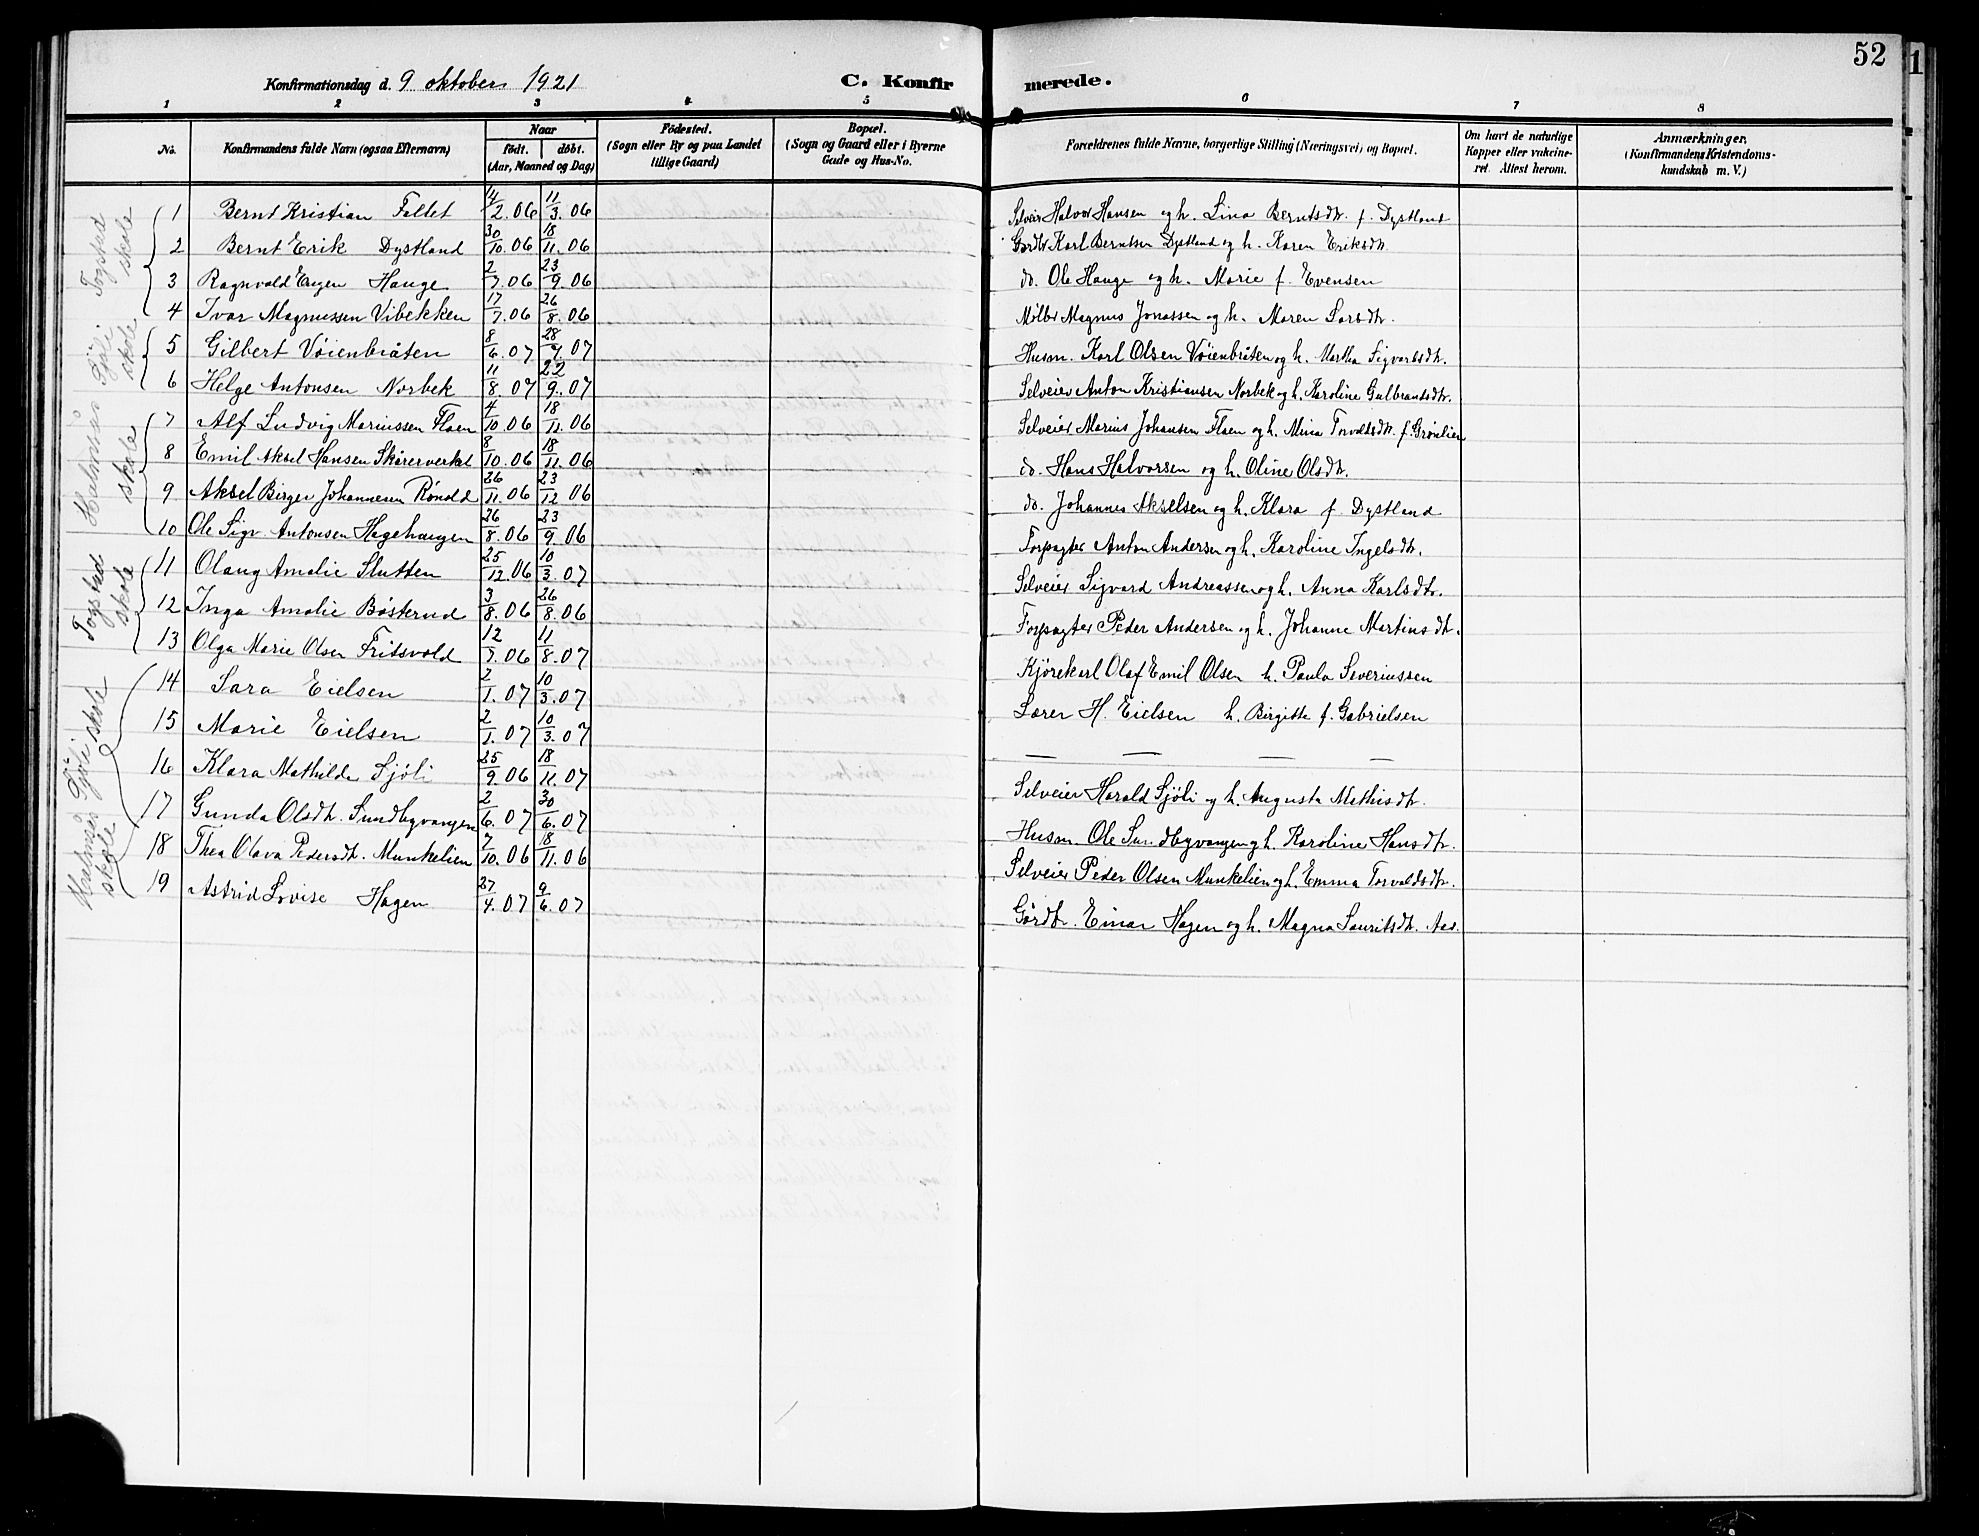 52
Konfirmationsdag d. 9 oktober 1921
C. Konfirmerede.
1 2 3 4 5 6 7 8
No. Konfirmandens fulde Navn (ogsaa Efternavn) Naar født. døbt. (Aar, Maaned og Dag) Fødested. (Sogn eller By og paa Landet tillige Gaard) Bopæl. (Sogn og Gaard eller i Byerne Gade og Hus-No. Forældrenes fulde Navne, borgerlige Stilling (Næringsvei) og Bopæl. Om havt de naturlige Kopper eller vakcineret. Attest herom. Anmærkninger. (Konfirmandens Kristendomskundskab m. V.)
Togstad skole
1 Bernt Kristian Fallet 14/2.06 11/3.06 Selveier Halvor Hansen og h. Lina Berntsdtr. f. Dystland
2 Bernt Erik Dystland 30/10.06 18/11.06 Gårdbr Karl Berntsen Dystland og h. Karen Eriksdtr.
3 Ragnvald Eugen Hauge 2/7.06 23/9.06 do. Ole Hauge og h. Marie f. Evensen
4 Ivar Magnussen Vibekken 17/7.06 26/8.06 Mølbr Magnus Jonassen og h. Maren Larsdtr.
Sjøli skole
5 Gilbert Vøienbråten 8/6.07 28/7.07 Husm. Karl Olsen Vøienbråten og h. Martha Sigvartsdtr.
6 Helge Antonsen Norbek 11/8.07 22/9.07 Selveier Anton Kristiansen Norbek og h. Karoline Gulbrantsdtr.
Holmås skole
7 Alf Ludvig Mariussen Flaen 4/10.06 18/11.06 Selveier Marius Johansen Flaen og h. Mina Torvaldsdtr. f. Grønlien
8 Emil Aksel Hansen Skårerverket 8/10.06 18/11.06 do. Hans Halvorsen og h. Oline Olsdtr.
9 Aksel Birger Johannesen Rønold 26/11.06 23/12 06 do. Johannes Akselsen og h. Klara f. Dystland
10 Ole Sigv. Antonsen Hagehaugen 26/8.06 23/9.06 Forpagter Anton Andersen og h. Karoline Ingelsdtr.
Togstad skole
11 Olaug Amalie Slutten 25/12.06 10/3.07 Selveier Sigvard Andreassen og h. Anna Karlsdtr.
12 Inga Amalie Bøsterud 3/8.06 26/8.06 Forpagter Peder Andersen og h. Johanne Martinsdtr.
13 Olga Marie Olsen Fritsvold 12/7.06 11/8.07 Kjørekarl Olaf Emil Olsen h. Paula Severinssen
Holmås Sjøli skole skole
14 Sara Eielsen 2/1.07 10/3.07 Lærer H. Eielsen h. Birgitte f. Gabrielsen
15 Marie Eielsen 2/1.07 10/3.07 — — — —
16 Klara Mathilde Sjøli 25/9.06 18/11.07 Selveier Harald Sjøli og h. Augusta Mathisdtr.
17 Gunda Olsdtr. Sundbyvangen 2/6.07 30/6.07 Husm. Ole Sundbyvangen og h. Karoline Hansdtr.
18 Thea Olava Pedersdtr. Munkelien 7/10.06 18/11.06 Selveier Peder Olsen Munkelien og h. Emma Torvaldsdtr.
19 Astrid Lovise Hagen 27/4.07 9/6.07 Gårdbr. Einar Hagen og h. Magna Lauritsdtr. Aas.